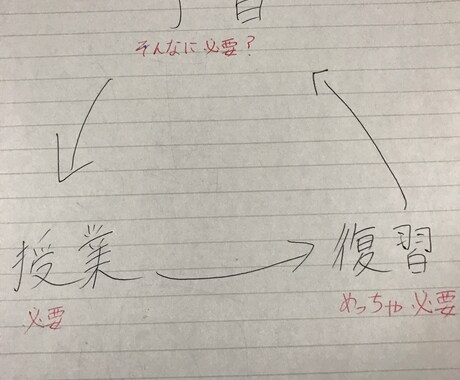 そんなに必要?
授業
必要
復習
めっちゃ必要